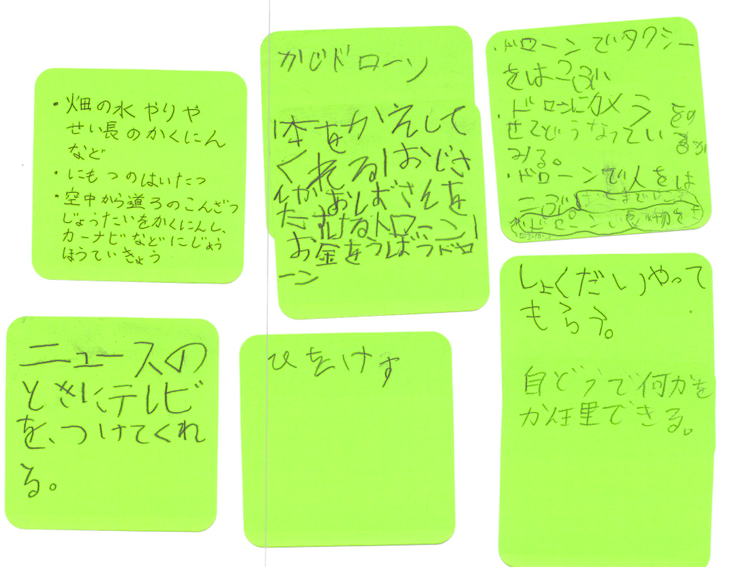 ・畑の水やりや
せい長のかくにん
など
・にもつのはいたつ
・空中から道ろのこんざつ
じょうたいをかくにんし、
カーナビなどにじょう
ほうていきょう
かじドローン
本をかえして
くれる
おばさんを
お金をうばうドロ
ーン
・ドローンでタクシー
をはこぶ
・ドローンにカメラ
せてどうなってい
みる。
・ドローンで人をは
こぶ。
ニュースの
ときにテレビ
を、つけてくれ
る。
ひをけす
しょくだいやって
もらう。
自どうで何かを
かん里できる。